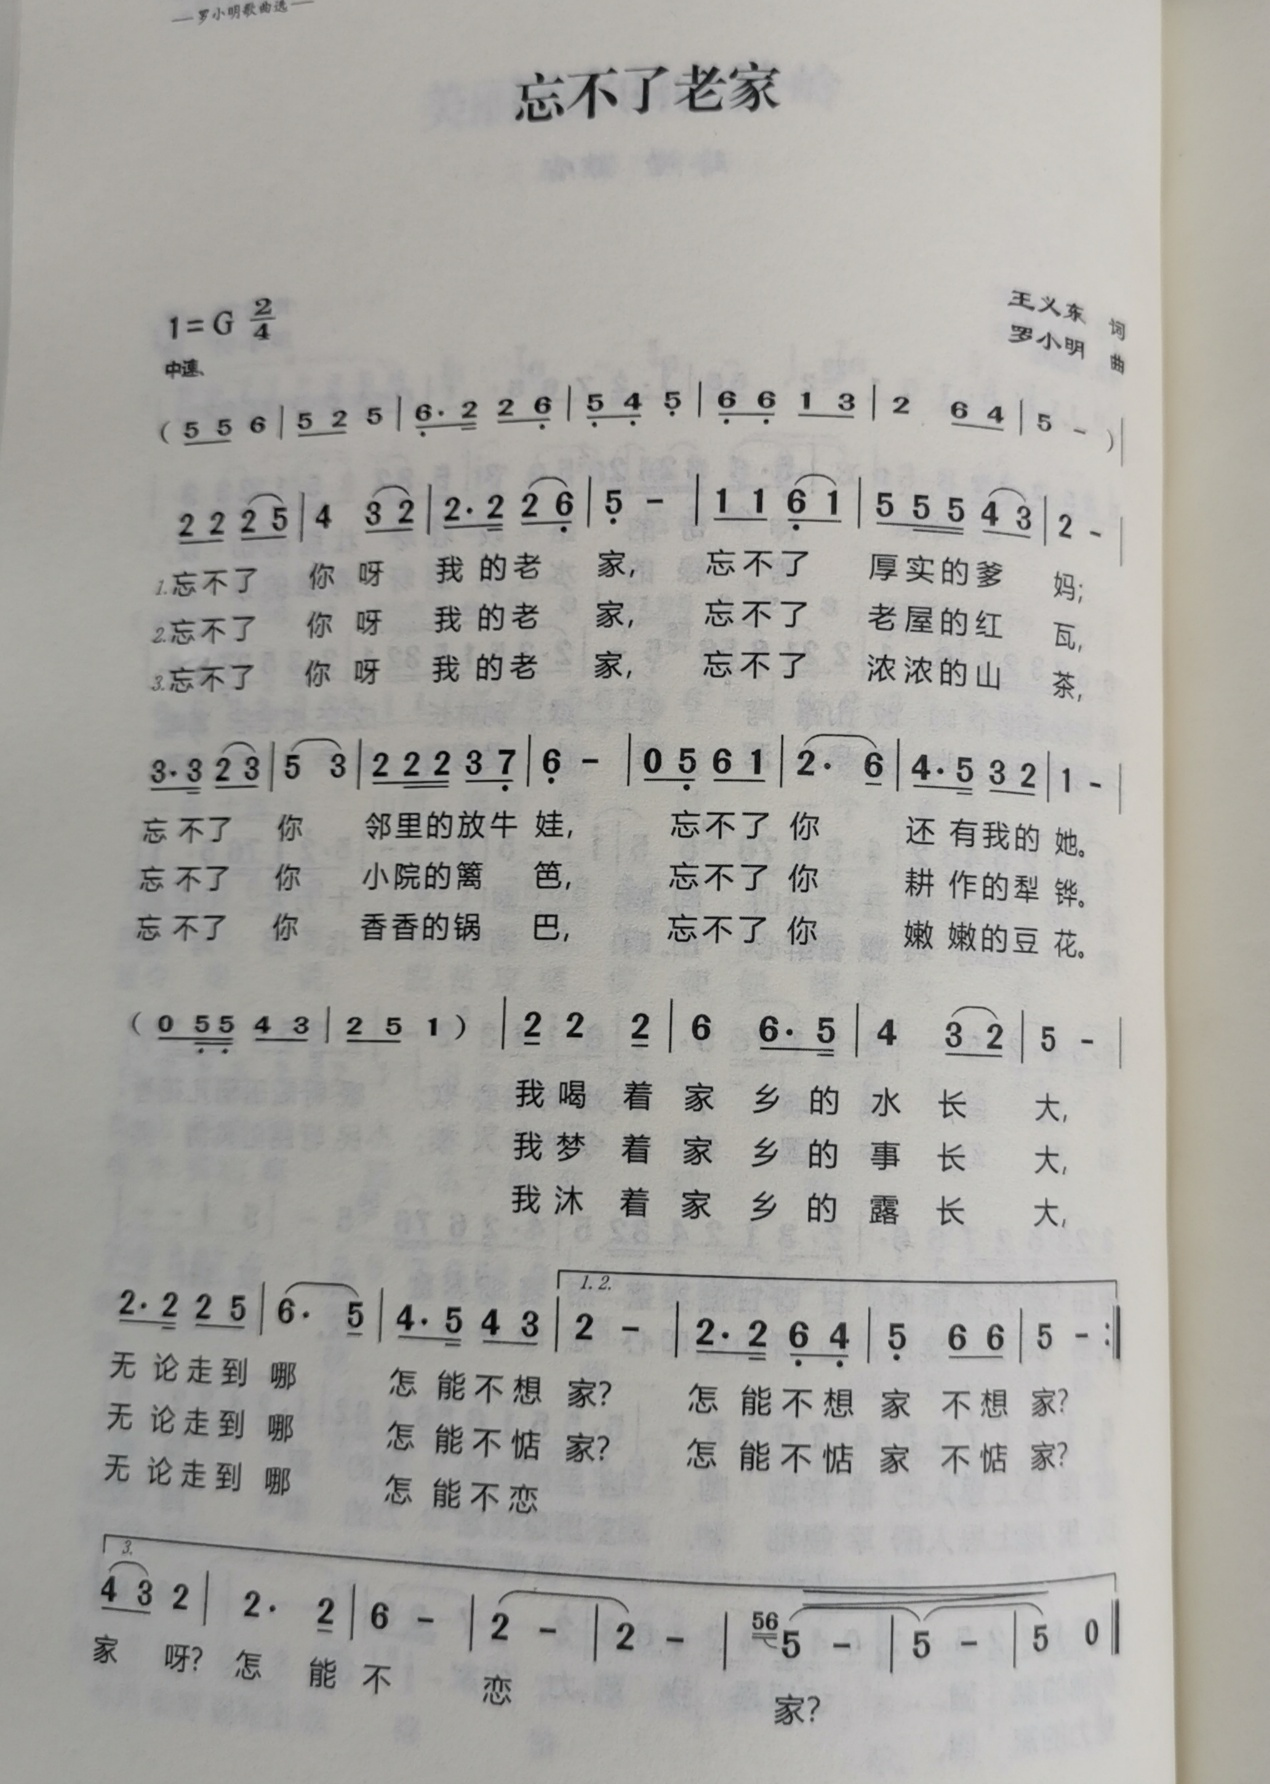 罗小明歌曲选
忘不了老家
1=G 2/4
王义东 词
罗小明 曲
中速、
( 5 5 6 | 5 2 5 | 6· 2 2 6 | 5 4 5 | 6 6 1 3 | 2 6 4 | 5 - ) |
2 2 2 5 | 4 3 2 | 2· 2 2 6 | 5 - | 1 1 6 1 | 5 5 5 4 3 | 2 - |
1.忘不了 你 呀 我 的 老 家, 忘 不 了 厚 实 的 爹 妈;
2.忘不了 你 呀 我 的 老 家, 忘 不 了 老 屋 的 红 瓦,
3.忘不了 你 呀 我 的 老 家, 忘 不 了 浓 浓 的 山 茶,
3· 3 2 3 | 5 3 | 2 2 2 3 7 | 6 - | 0 5 6 1 | 2· 6 | 4· 5 3 2 | 1 - |
忘 不了 你 邻里的放牛 娃, 忘不了 你 还 有我的 她。
忘 不了 你 小院的篱 笆, 忘不了 你 耕 作的犁 铧。
忘 不了 你 香香的锅 巴, 忘不了 你 嫩 嫩的豆 花。
( 0 5 5 4 3 | 2 5 1 ) | 2 2 2 | 6 6· 5 | 4 3 2 | 5 - |
我 喝 着 家 乡 的 水 长 大,
我 梦 着 家 乡 的 事 长 大,
我 沐 着 家 乡 的 露 长 大,
1. 2.
2· 2 2 5 | 6· 5 | 4· 5 4 3 | 2 - | 2· 2 6 4 | 5 6 6 | 5 - :|
无 论 走 到 哪 怎 能 不 想 家? 怎 能 不 想 家 不 想 家?
无 论 走 到 哪 怎 能 不 惦 家? 怎 能 不 惦 家 不 惦 家?
无 论 走 到 哪 怎 能 不 恋
3.
4 3 2 | 2· 2 | 6 - | 2 - | 2 - | 56 5 - | 5 - | 5 0 ‖
家 呀? 怎 能 不 恋 家?